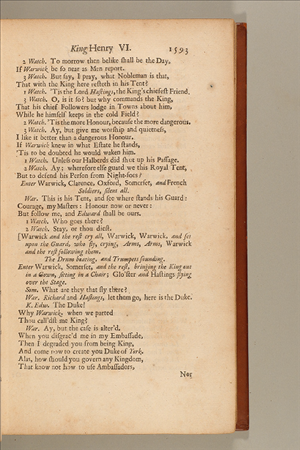 King Henry VI. 1593
2 Watch. To morrow then belike shall be the Day,
If Warwick be so near as Men report.
3 Watch. But say, I pray, what Nobleman is that,
That with the King here resteth in his Tent?
1 Watch. 'Tis the Lord Hastings, the King's chiefest Friend.
3 Watch. O, is it so? but why commands the King,
That his chief Followers lodge in Towns about him,
While he himself keeps in the cold Field?
2 Watch. 'Tis the more Honour, because the more dangerous.
3 Watch. Ay, but give me worship and quietness,
I like it better than a dangerous Honour.
If Warwick knew in what Estate he stands,
'Tis to be doubted he would waken him.
1 Watch. Unless our Halberds did shut up his Passage.
2 Watch. Ay; wherefore else guard we this Royal Tent,
But to defend his Person from Night-foes?
Enter Warwick, Clarence, Oxford, Somerset, and French
Soldiers, silent all.
War. This is his Tent, and see where stands his Guard:
Courage, my Masters: Honour now or never:
But follow me, and Edward shall be ours.
1 Watch. Who goes there?
2 Watch. Stay, or thou diest.
[Warwick and the rest cry all, Warwick, Warwick, and set
upon the Guard, who fly, crying, Arms, Arms, Warwick
and the rest following them.
The Drum beating, and Trumpets sounding.
Enter Warwick, Somerset, and the rest, bringing the King out
in a Gown, sitting in a Chair; Glo'ster and Hastings flying
over the Stage.
Som. What are they that fly there?
War. Richard and Hastings, let them go, here is the Duke.
K. Edw. The Duke!
Why Warwick, when we parted
Thou call'dst me King?
War. Ay, but the case is alter'd.
When you disgrac'd me in my Embassade,
Then I degraded you from being King,
And come now to create you Duke of York.
Alas, how should you govern any Kingdom,
That know not how to use Ambassadors,
Nor